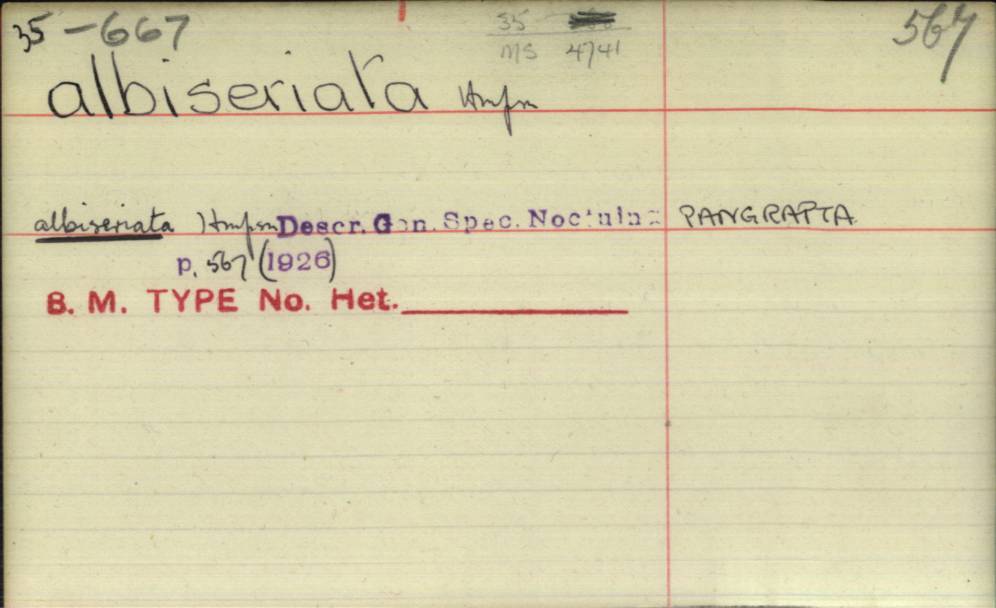 35-667
35
MS 4741
567
albiseriata Hmpsn
albiseriata Hmpsn Descr. Gen. Spec. Noctuinæ PANGRAPTA
p. 567 (1926)
B. M. TYPE No. Het.